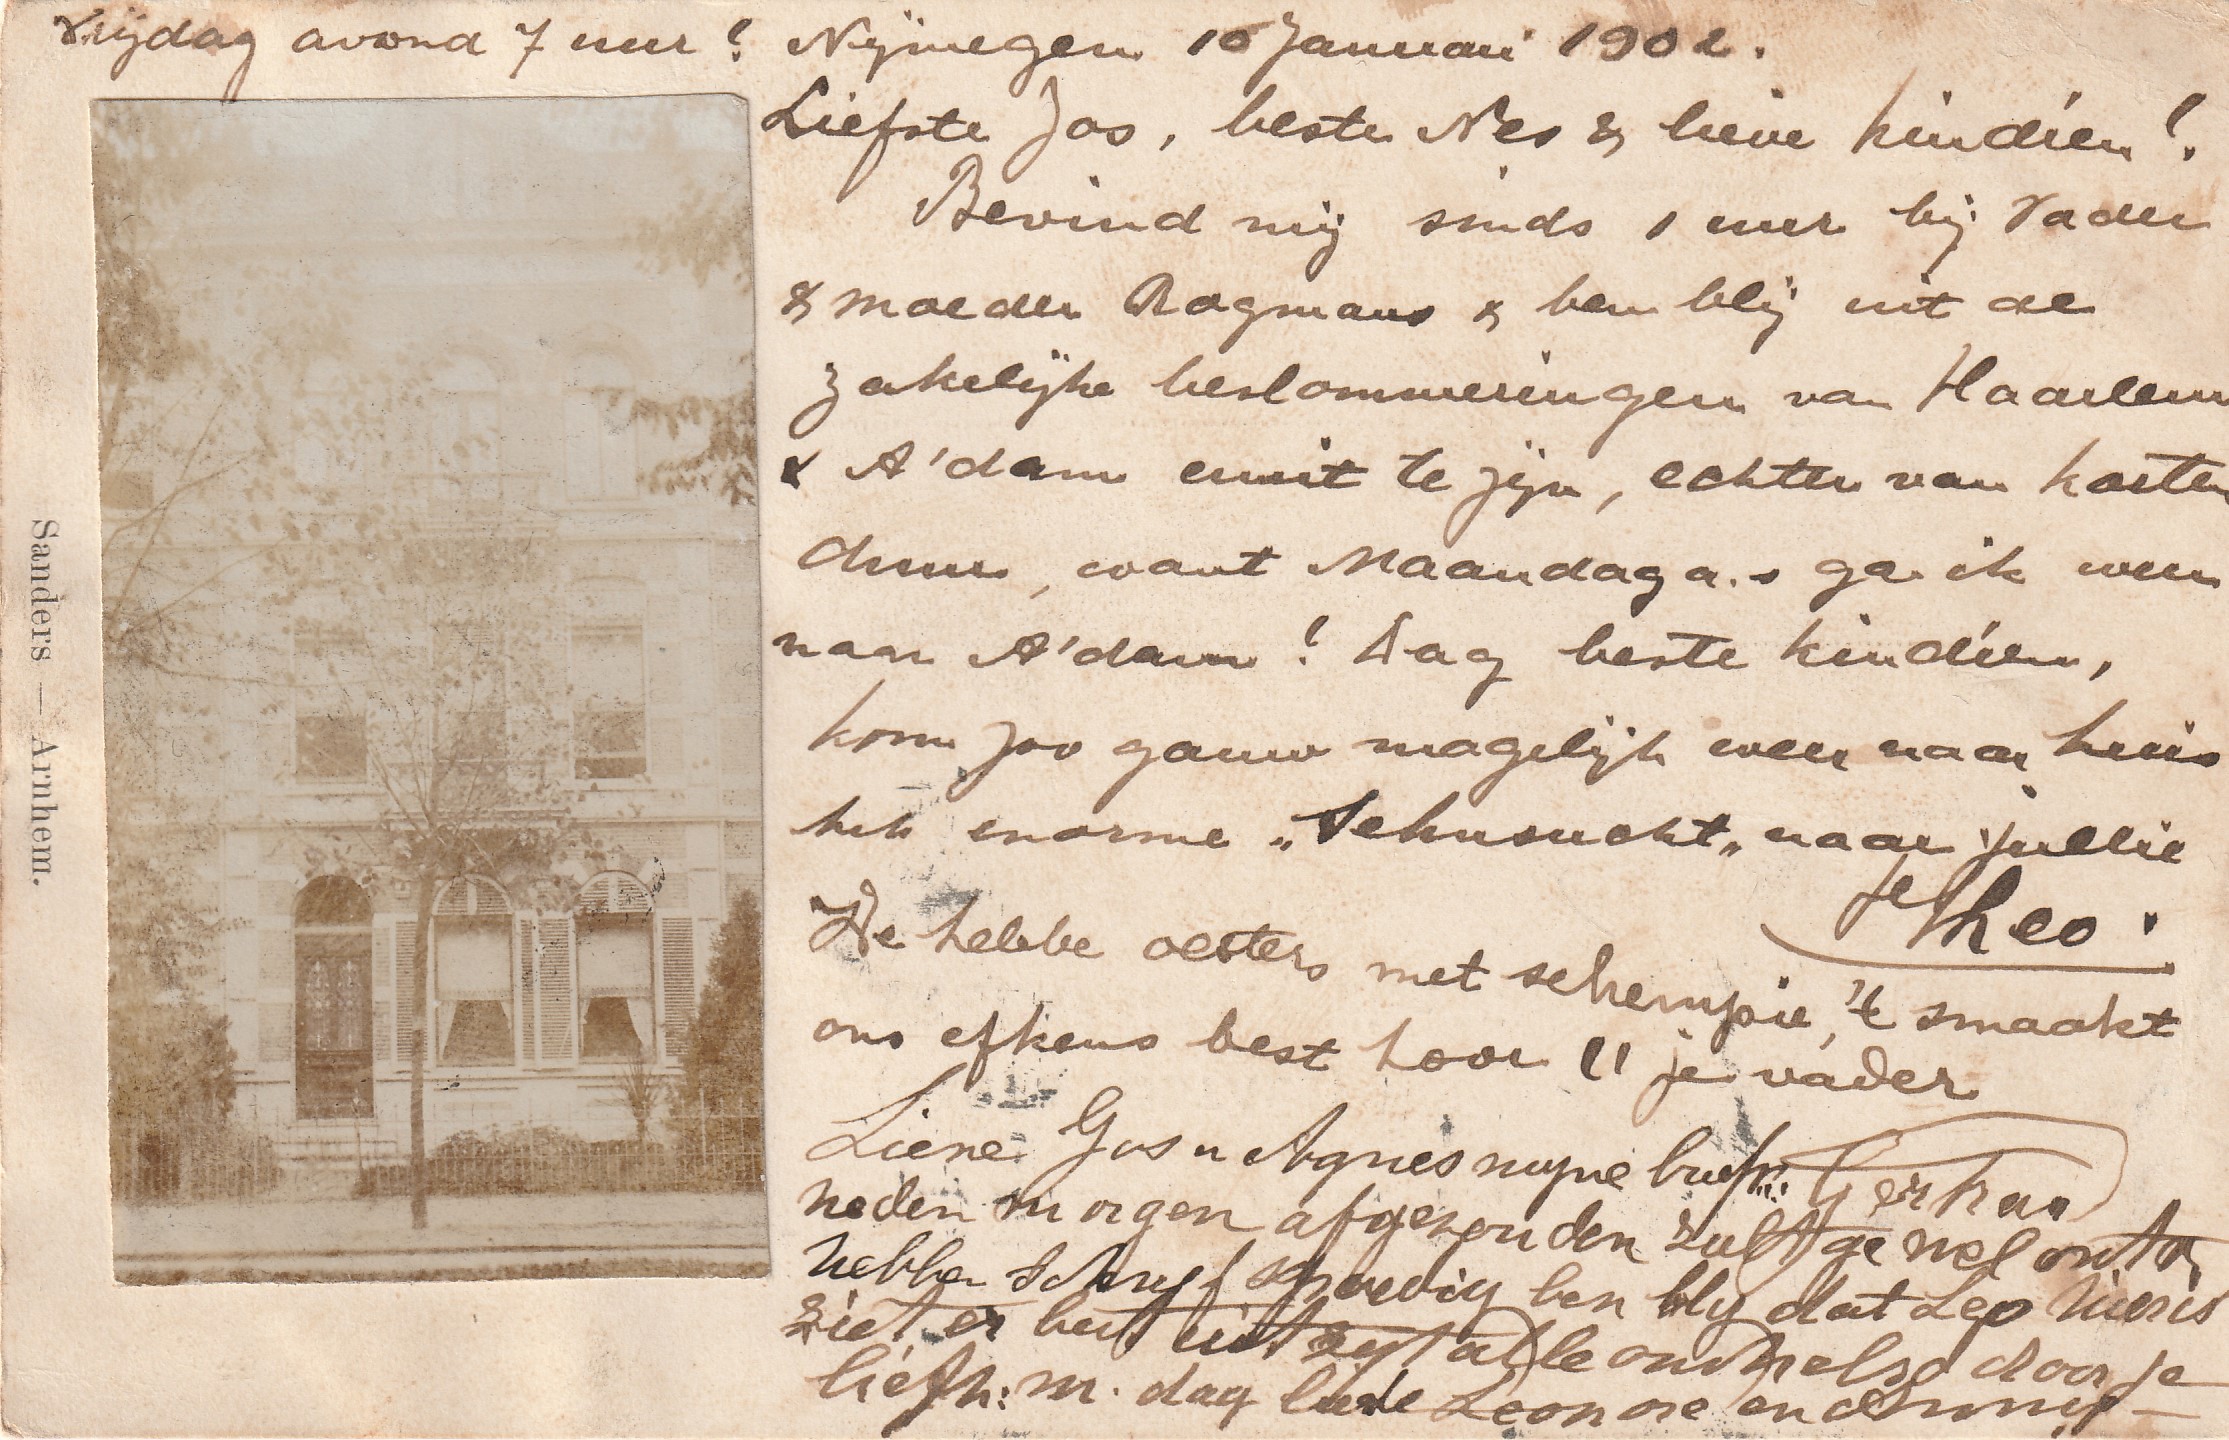 Vrijdag avond 7 uur! Nijmegen 10 Januari 1902.
Liefste Jos, beste Nes & lieve kind'ren!
Bevind mij sinds 1 uur bij Vader
& moeder Rogmans & ben blij uit de
zakelijke beslommeringen van Haarlem
& A'dam eruit te zijn, echter van korten
duur, want Maandag a.s ga ik weer
naar A'dam! Dag beste kind'ren,
kom zoo gauw mogelijk weer naar huis
heb enorme „Sehnsucht„ naar jullie
Je Theo.
We hebbe oesters met schempie, 't smaakt
ons efkens best hoor!! je vader
Lieve Jos en Agnes mijne
heden morgen afgezonden zult ge wel
hebben schrijf spoedig ben bly dat Leo hier is
ziet er best uit zyt alle omhelsd door je
liefh: m. dag lieve Leonore en
Sanders — Arnhem.